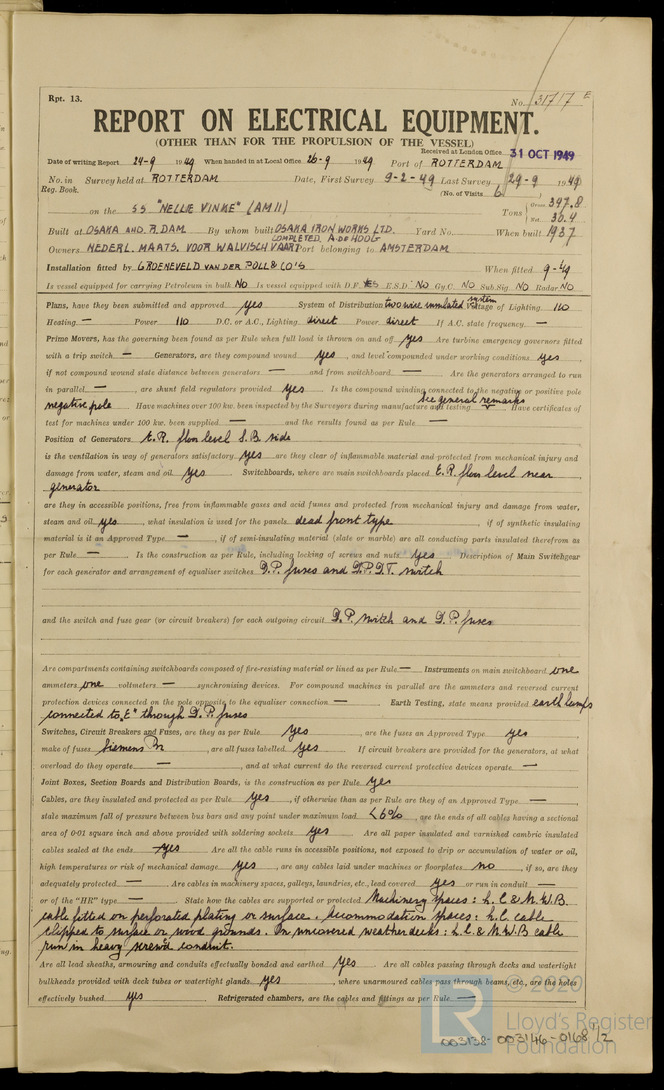 Rpt. 13.
No. 31717 E
REPORT ON ELECTRICAL EQUIPMENT.
(OTHER THAN FOR THE PROPULSION OF THE VESSEL)
Received at London Office 31 OCT 1949
Date of writing Report 24-9 1949 When handed in at Local Office 26-9 1949 Port of ROTTERDAM
No. in Reg. Book. Survey held at ROTTERDAM Date, First Survey 9-2-49 Last Survey 29-9 1949
(No. of Visits 6
on the SS "NELLIE VINKE" (AM II) Tons Gross 347.8 Net 30.4
Built at OSAKA AND A.DAM By whom built OSAKA IRON WORKS LTD. COMPLETED A. DE HOOG Yard No. When built 1937
Owners NEDERL. MAATS. VOOR WALVISCH VAART Port belonging to AMSTERDAM
Installation fitted by GROENEVELD VAN DER POLL & CO'S When fitted 9-49
Is vessel equipped for carrying Petroleum in bulk NO Is vessel equipped with D.F. YES E.S.D NO Gy.C. NO Sub.Sig. NO Radar NO
Plans, have they been submitted and approved yes System of Distribution two wire insulated system Voltage of Lighting 110
Heating — Power 110 D.C. or A.C., Lighting direct Power direct If A.C. state frequency —
Prime Movers, has the governing been found as per Rule when full load is thrown on and off yes Are turbine emergency governors fitted
with a trip switch — Generators, are they compound wound yes, and level compounded under working conditions yes,
if not compound wound state distance between generators — and from switchboard — Are the generators arranged to run
in parallel —, are shunt field regulators provided yes Is the compound winding connected to the negative or positive pole
negative pole Have machines over 100 kw. been inspected by the Surveyors during manufacture and testing see general remarks Have certificates of
test for machines under 100 kw. been supplied — and the results found as per Rule —
Position of Generators E.R. floor level S.B side
is the ventilation in way of generators satisfactory yes are they clear of inflammable material and protected from mechanical injury and
damage from water, steam and oil yes. Switchboards, where are main switchboards placed E.R. floor level near
generator
are they in accessible positions, free from inflammable gases and acid fumes and protected from mechanical injury and damage from water,
steam and oil yes, what insulation is used for the panels dead front type, if of synthetic insulating
material is it an Approved Type —, if of semi-insulating material (slate or marble) are all conducting parts insulated therefrom as
per Rule — Is the construction as per Rule, including locking of screws and nuts yes Description of Main Switchgear
for each generator and arrangement of equaliser switches D.P. fuses and D.P.D.T. switch
and the switch and fuse gear (or circuit breakers) for each outgoing circuit D.P. switch and D.P. fuses
Are compartments containing switchboards composed of fire-resisting material or lined as per Rule — Instruments on main switchboard one
ammeters one voltmeters — synchronising devices. For compound machines in parallel are the ammeters and reversed current
protection devices connected on the pole opposite to the equaliser connection — Earth Testing, state means provided earth lamps
connected to "E" through D.P. fuses
Switches, Circuit Breakers and Fuses, are they as per Rule yes, are the fuses an Approved Type yes
make of fuses Siemens Br, are all fuses labelled yes If circuit breakers are provided for the generators, at what
overload do they operate —, and at what current do the reversed current protective devices operate —
Joint Boxes, Section Boards and Distribution Boards, is the construction as per Rule yes
Cables, are they insulated and protected as per Rule yes, if otherwise than as per Rule are they of an Approved Type —
state maximum fall of pressure between bus bars and any point under maximum load <6%, are the ends of all cables having a sectional
area of 0·01 square inch and above provided with soldering sockets yes Are all paper insulated and varnished cambric insulated
cables sealed at the ends yes Are all the cable runs in accessible positions, not exposed to drip or accumulation of water or oil,
high temperatures or risk of mechanical damage yes, are any cables laid under machines or floorplates no, if so, are they
adequately protected — Are cables in machinery spaces, galleys, laundries, etc., lead covered yes or run in conduit —
or of the "HR" type — State how the cables are supported or protected Machinery spaces: L.C & M.W.B
cable fitted on perforated plating or surface. Accommodation spaces: L.C cable
clipped to surface or wood grounds. On uncovered weatherdecks: L.C & M.W.B cable
run in heavy screwed conduit.
Are all lead sheaths, armouring and conduits effectually bonded and earthed yes Are all cables passing through decks and watertight
bulkheads provided with deck tubes or watertight glands yes, where unarmoured cables pass through beams, etc., are the holes
effectively bushed yes Refrigerated chambers, are the cables and fittings as per Rule —
© 2020
LR
Lloyd's Register
Foundation
003138-003146-0168 1/2